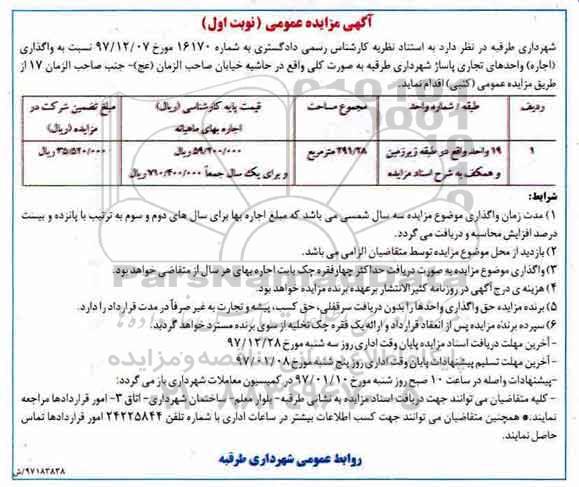 آگهی مزایده عمومی (نوبت اول)
شهرداری طرقبه در نظر دارد به استناد نظریه کارشناس رسمی دادگستری به شماره ۱۶۱۷۰ مورخ ۹۷/۱۲/۰۷ نسبت به واگذاری
(اجاره) واحدهای تجاری پاساژ شهرداری طرقبه به صورت کلی واقع در حاشیه خیابان صاحب الزمان (عج)- جنب صاحب الزمان ۱۷ از
طریق مزایده عمومی (کتبی) اقدام نماید.
ردیف طبقه / شماره واحد مجموع مساحت قیمت پایه کارشناسی (ریال) اجاره بهای ماهیانه مبلغ تضمین شرکت در مزایده (ریال)
۱ ۱۹ واحد واقع دو طبقه زیرزمین و همکف به شرح اسناد مزایده ۲۹۱/۲۸ مترمربع ۵۹/۲۰۰/۰۰۰ ریال و برای یک سال جمعاً ۷۱۰/۴۰۰/۰۰۰ ریال ۳۵/۵۲۰/۰۰۰ ریال
شرایط:
۱) مدت زمان واگذاری موضوع مزایده سه سال شمسی می باشد که مبلغ اجاره بها برای سال های دوم و سوم به ترتیب با پانزده و بیست
درصد افزایش محاسبه و دریافت می گردد.
۲) بازدید از محل موضوع مزایده توسط متقاضیان الزامی می باشد.
۳) واگذاری موضوع مزایده به صورت دریافت حداکثر چهار فقره چک بابت اجاره بهای هر سال از متقاضی خواهد بود.
۴) هزینه ی درج آگهی در روزنامه کثیرالانتشار برعهده برنده مزایده خواهد بود.
۵) برنده مزایده حق واگذاری واحدها را بدون دریافت سرقفلی، حق کسب، پیشه و تجارت به غیر صرفاً در مدت قرارداد را دارد.
۶) سپرده برنده مزایده پس از انعقاد قرارداد و ارائه یک فقره چک تخلیه از سوی برنده مسترد خواهد گردید.
- آخرین مهلت دریافت اسناد مزایده پایان وقت اداری روز سه شنبه مورخ ۹۷/۱۲/۲۸
- آخرین مهلت تسلیم پیشنهادات پایان وقت اداری روز پنج شنبه مورخ ۹۷/۰۱/۰۸
-پیشنهادات واصله در ساعت ۱۰ صبح روز شنبه مورخ ۹۷/۰۱/۱۰ در کمیسیون معاملات شهرداری باز می گردد:
- کلیه متقاضیان می توانند جهت دریافت اسناد مزایده به نشانی طرقبه- بلوار معلم- ساختمان شهرداری- اتاق ۳- امور قراردادها مراجعه
نمایند.● همچنین متقاضیان می توانند جهت کسب اطلاعات بیشتر در ساعات اداری با شماره تلفن ۲۴۲۲۵۸۴۴ امور قراردادها تماس
حاصل نمایند.
روابط عمومی شهرداری طرقبه
۹۷۱۸۳۸۳۸/ش
ParsNamadData